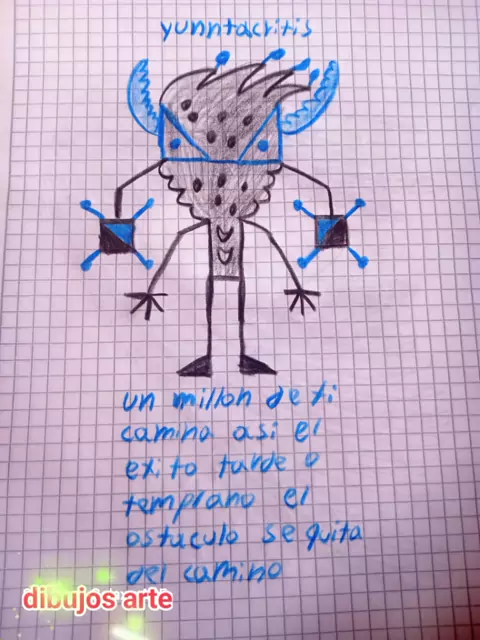 yunntacritis
un millon de ti
camina asi el
exito turde o
temprano el
ostuculo se quita
del camino
dibujos arte